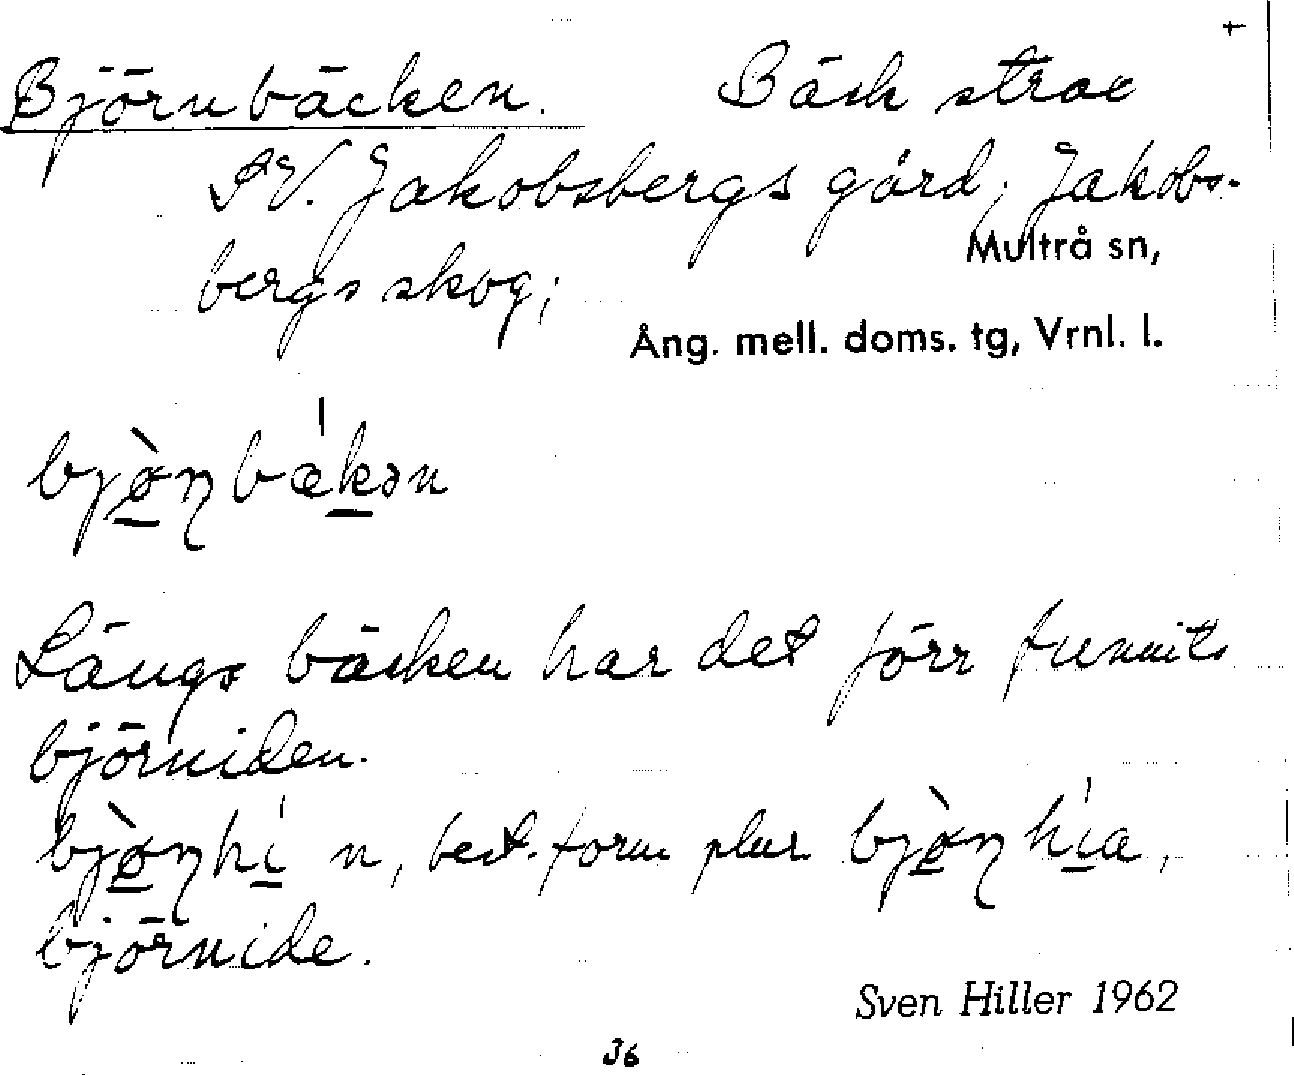 +
Björnbäcken. Bäck strax
SV. Jakobsbergs gård, Jakobs-
bergs skog;
Multrå sn,
Ång. mell. doms. tg, Vrnl. l.
Längs bäcken har det förr funnits
björniden.
n, best. form plur
björnide.
Sven Hiller 1962
36